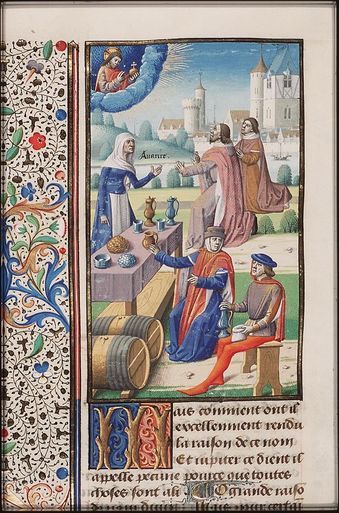 Auarice.
Mais comment ont il
excellemment rendu
la raison de ce nom.
Et iupiter ce dient il
appelle pecune pource que toutes
choses sont a lui O grande raiso